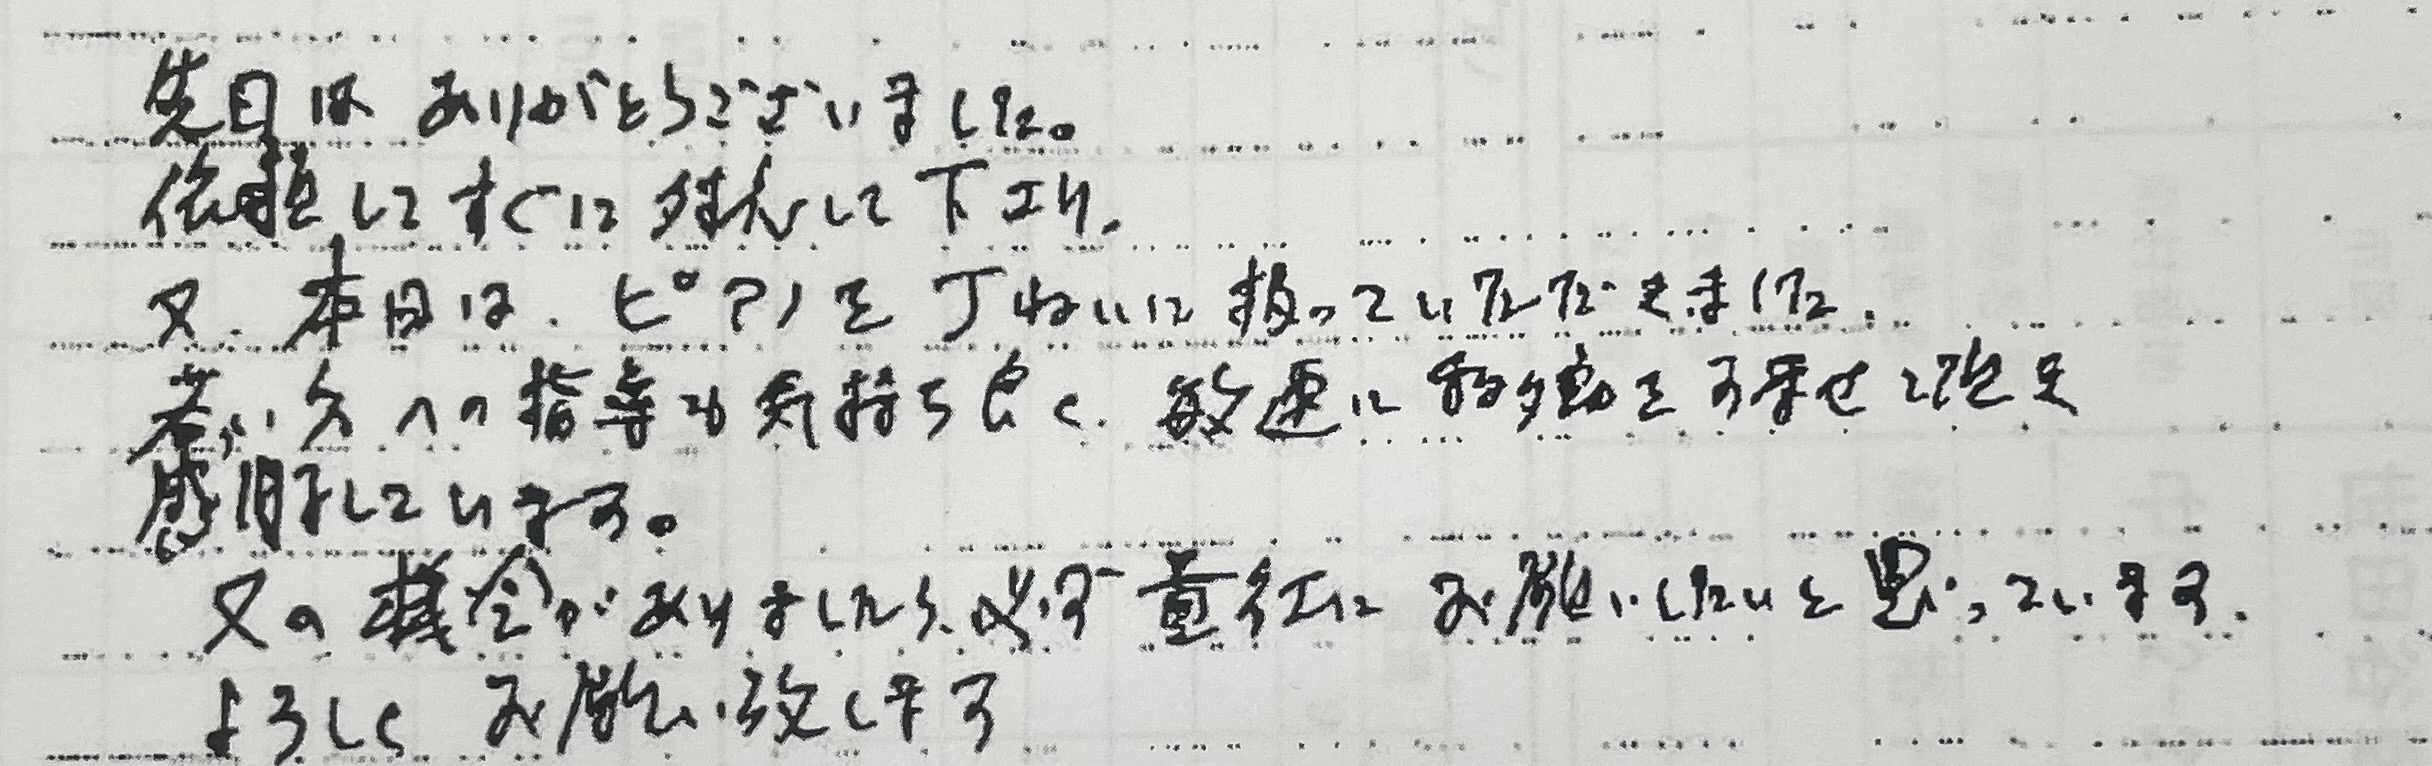 先日は ありがとうございました。
依頼してすぐに対応して下さり、
又、本日は、ピアノを丁ねいに扱っていただきました。
若い方への指導も気持ち良く、敏速に移動を済ませて頂き
感謝しています。
又の機会がありましたら、必ず重行にお願いしたいと思っています。
よろしくお願い致します